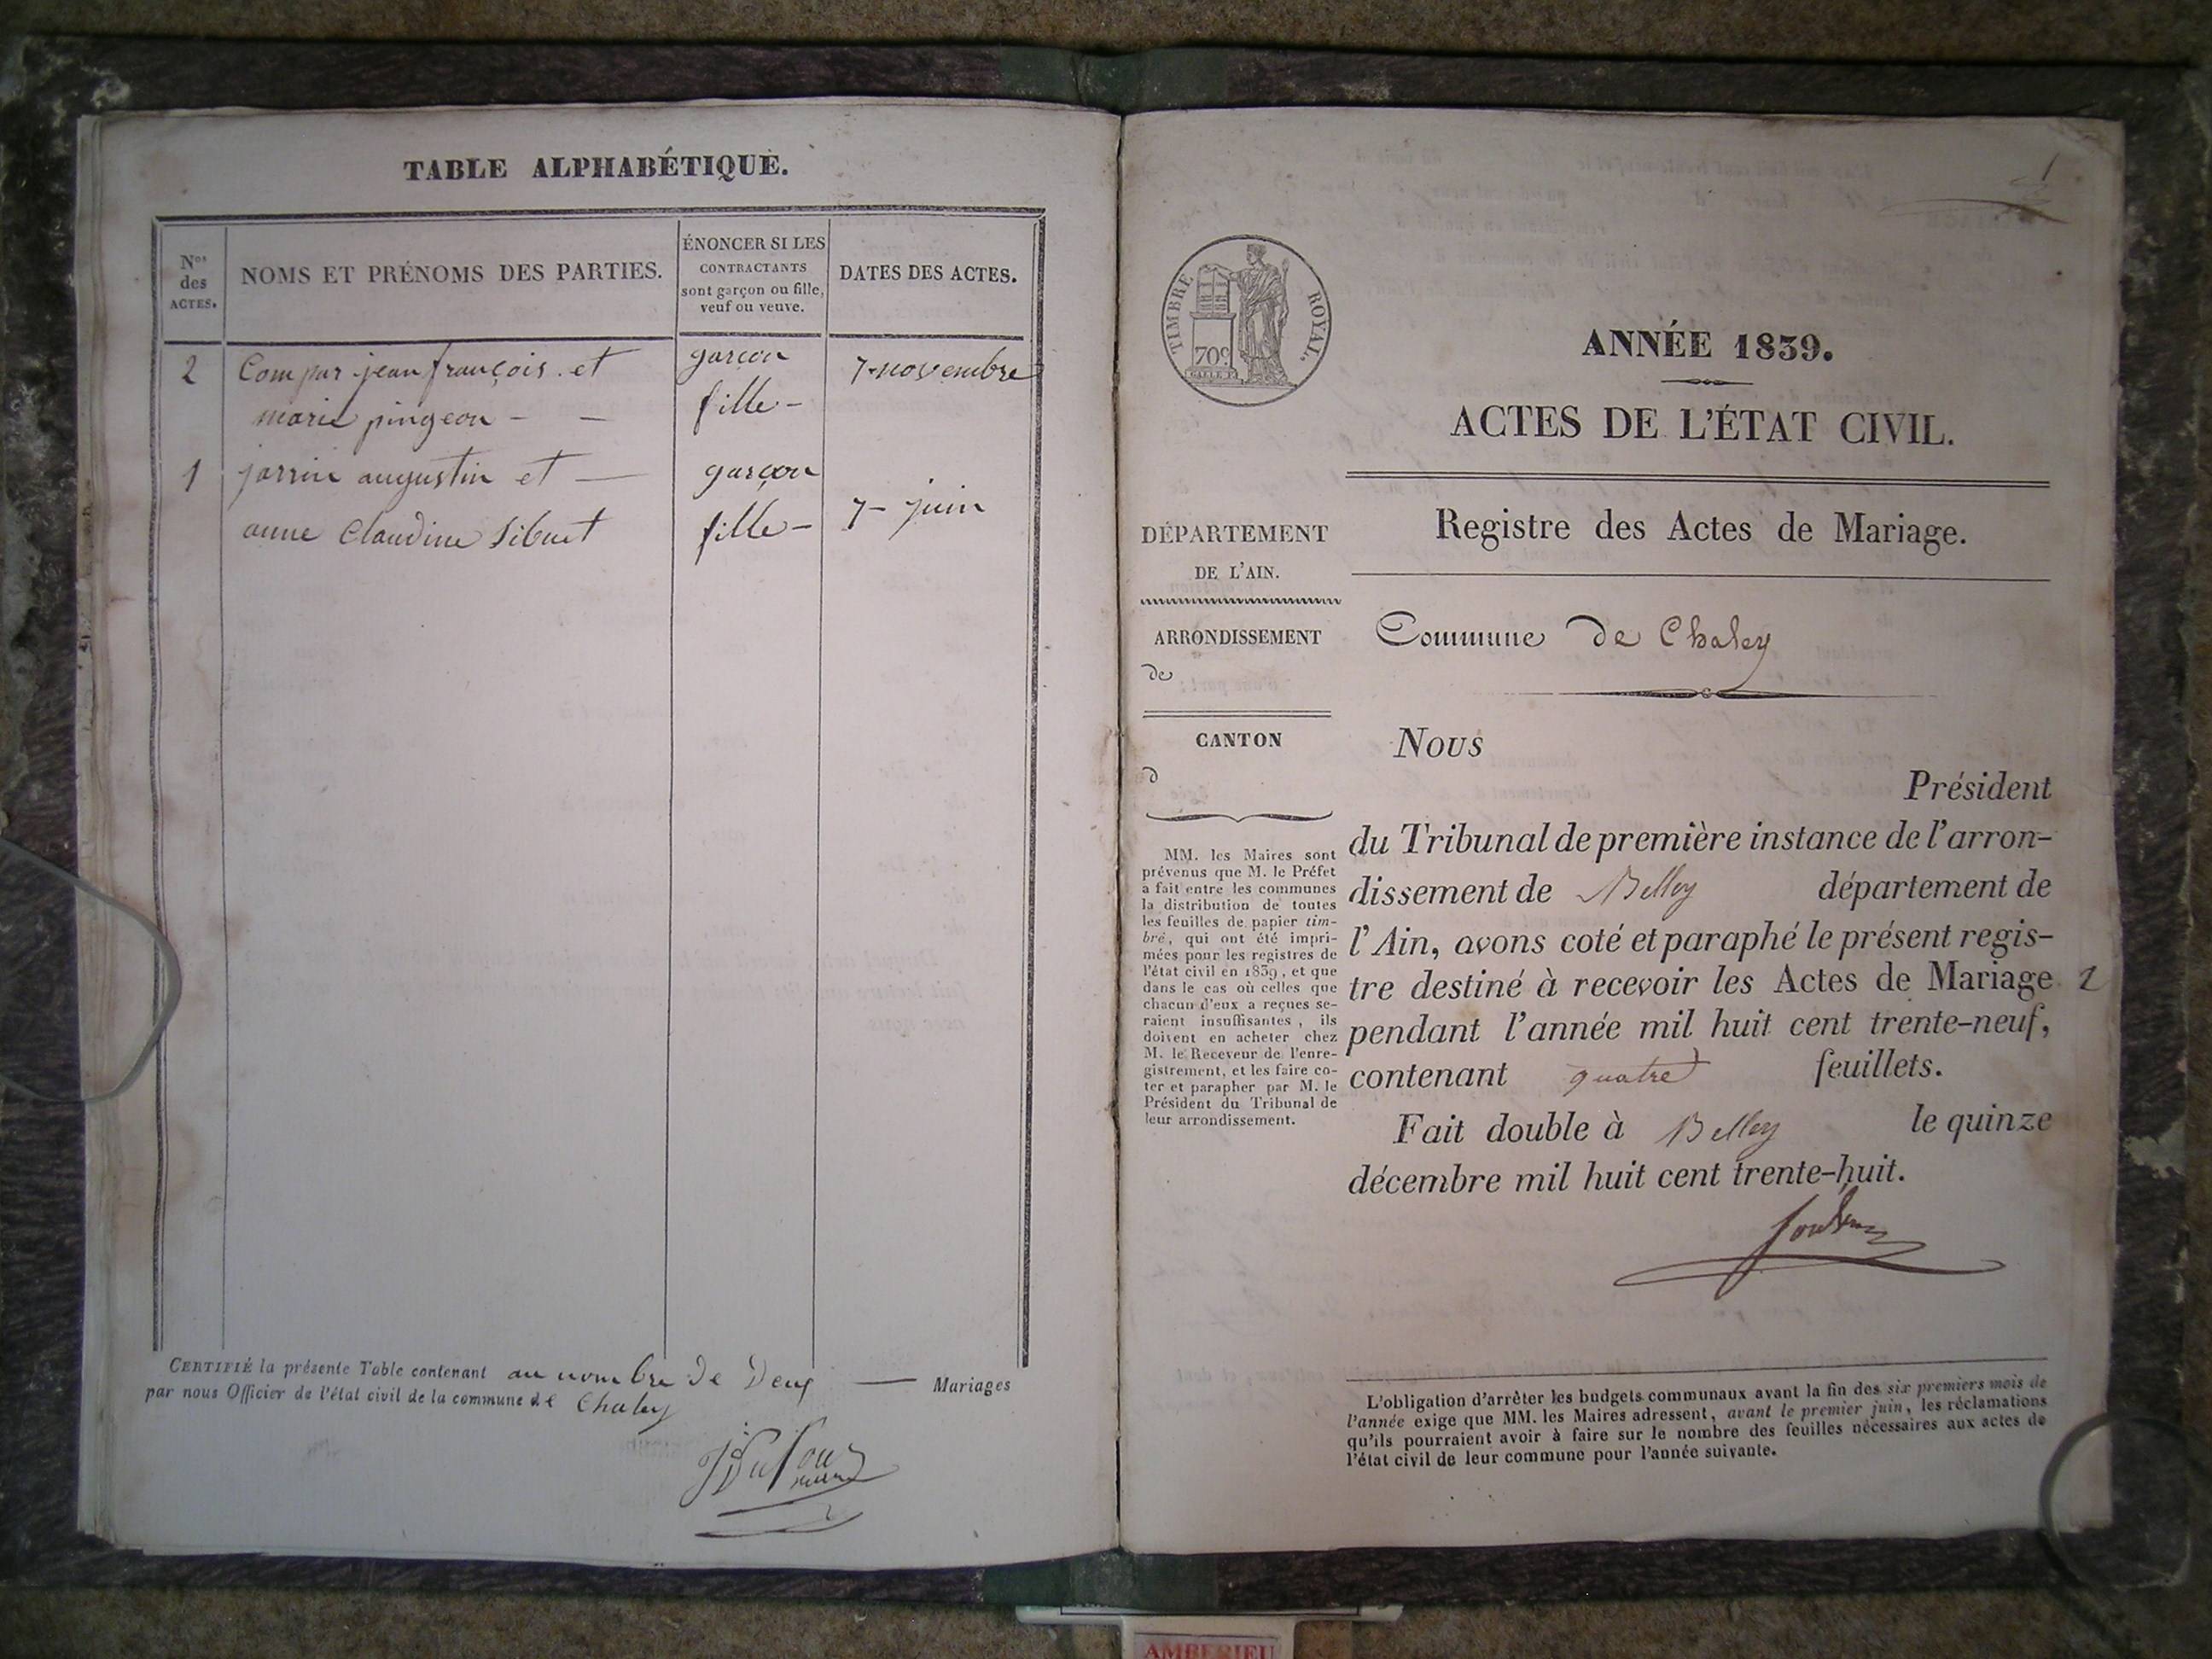 TABLE ALPHABÉTIQUE.
Nos des ACTES.
NOMS ET PRÉNOMS DES PARTIES.
ÉNONCER SI LES
CONTRACTANTS
sont garçon ou fille,
veuf ou veuve.
DATES DES ACTES.
2 Compar jean françois et garçon 7 novembre
marie pingeon - - fille -
1 jarrin augustin et — garçon
anne Claudine Sibuet fille - 7 - juin
CERTIFIÉ la présente Table contenant au nombre de Deux — Mariages
par nous Officier de l'état civil de la commune de Chaley
1
TIMBRE ROYAL.
70c
ANNÉE 1839.
ACTES DE L'ÉTAT CIVIL.
Registre des Actes de Mariage.
DÉPARTEMENT
DE L'AIN.
ARRONDISSEMENT
de
CANTON
d
MM. les Maires sont
prévenus que M. le Préfet
a fait entre les communes
la distribution de toutes
les feuilles de papier tim-
bré, qui ont été impri-
mées pour les registres de
l'état civil en 1839, et que
dans le cas où celles que
chacun d'eux a reçues se-
raient insuffisantes, ils
doivent en acheter chez
M. le Receveur de l'enre-
gistrement, et les faire co-
ter et parapher par M. le
Président du Tribunal de
leur arrondissement.
Commune de Chaley
Nous
Président
du Tribunal de première instance de l'arron-
dissement de Belley département de
l'Ain, avons coté et paraphé le présent regis-
tre destiné à recevoir les Actes de Mariage
pendant l'année mil huit cent trente-neuf,
contenant quatre feuillets.
Fait double à Belley le quinze
décembre mil huit cent trente-huit.
L'obligation d'arrêter les budgets communaux avant la fin des six premiers mois de
l'année exige que MM. les Maires adressent, avant le premier juin, les réclamations
qu'ils pourraient avoir à faire sur le nombre des feuilles nécessaires aux actes de
l'état civil de leur commune pour l'année suivante.
AMBERIEU